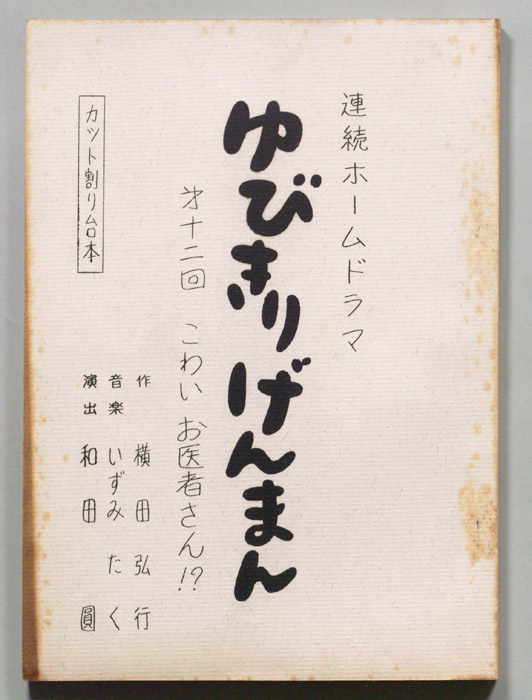 連続ホームドラマ
ゆびきりげんまん
第十二回 こわいお医者さん!?
作 横田弘行
音楽 いずみたく
演出 和田圓
カット割り台本